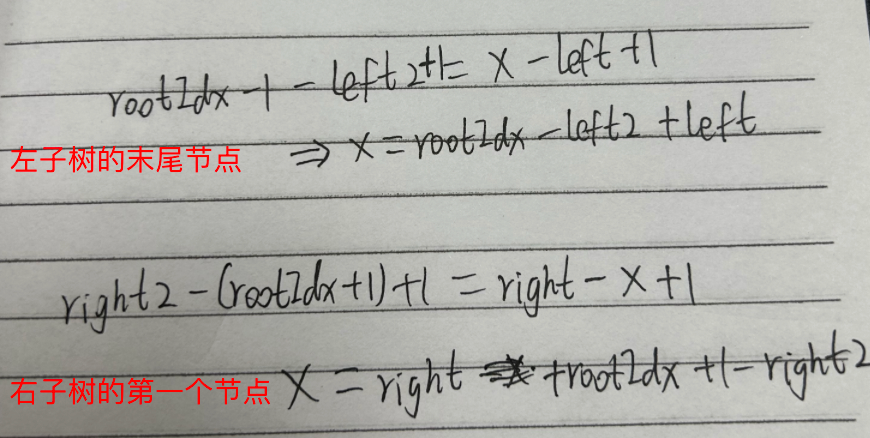 rootIdx -1 - left2+1= x - left +1
左子树的末尾节点 ⇒ x = rootIdx - left2 + left
right2 - (rootIdx+1)+1 = right - x +1
右子树的第一个节点 x = right +rootIdx +1 - right2